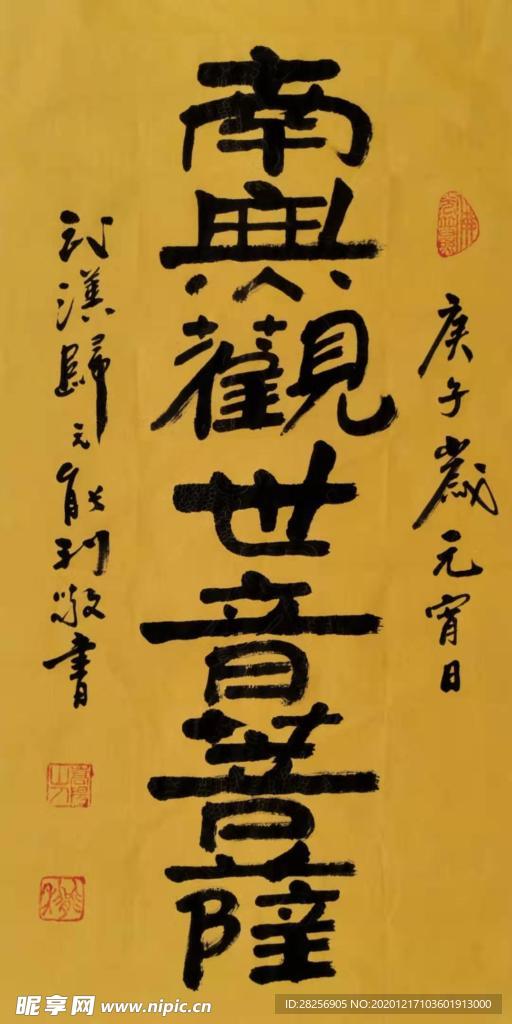 庚子歲元宵日
南無觀世音菩薩
武漢歸元能利敬書
昵享网 www.nipic.cn
ID:28256905 NO:20201217103601913000